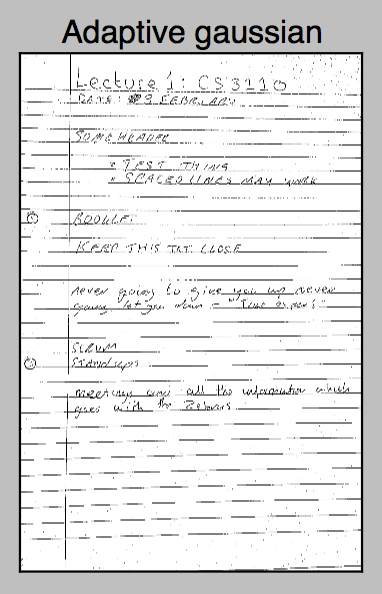 Adaptive gaussian
Lecture 1: CS 3110
DATE: 3 FEBRUARY
SOME HEADER
• TEST THING
• SPACED LINES MAY WORK
KEEP THIS TXT CLOSE
never going to give you up never
going let you down -
SCRUM
STANDUPS
meetings and all the information which
goes with the